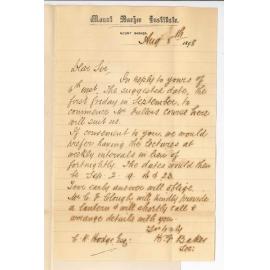 Mount Barker Institute.
MOUNT BARKER,
Aug 8th 1898
Dear Sir
In reply to yours of
6th inst. The suggested date, the
first friday in September, to
commence Mr Fullers course here
will suit us.
If convenient to you, we would
prefer having the lectures at
weekly intervals in lieu of
fortnightly. The dates would then
be Sep. 2. 9. 16 & 23.
Your early answer will oblige.
Mr C. F. Clough will kindly provide
a lantern & will shortly call &
arrange details with you
Yrs truly
C. R. Hodge Esq: H. F. Baker
Sec: